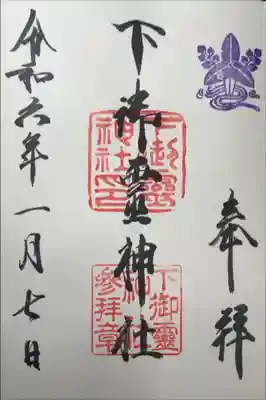 奉拝
下御靈神社
下御靈
神社
参拝章
令和六年一月七日